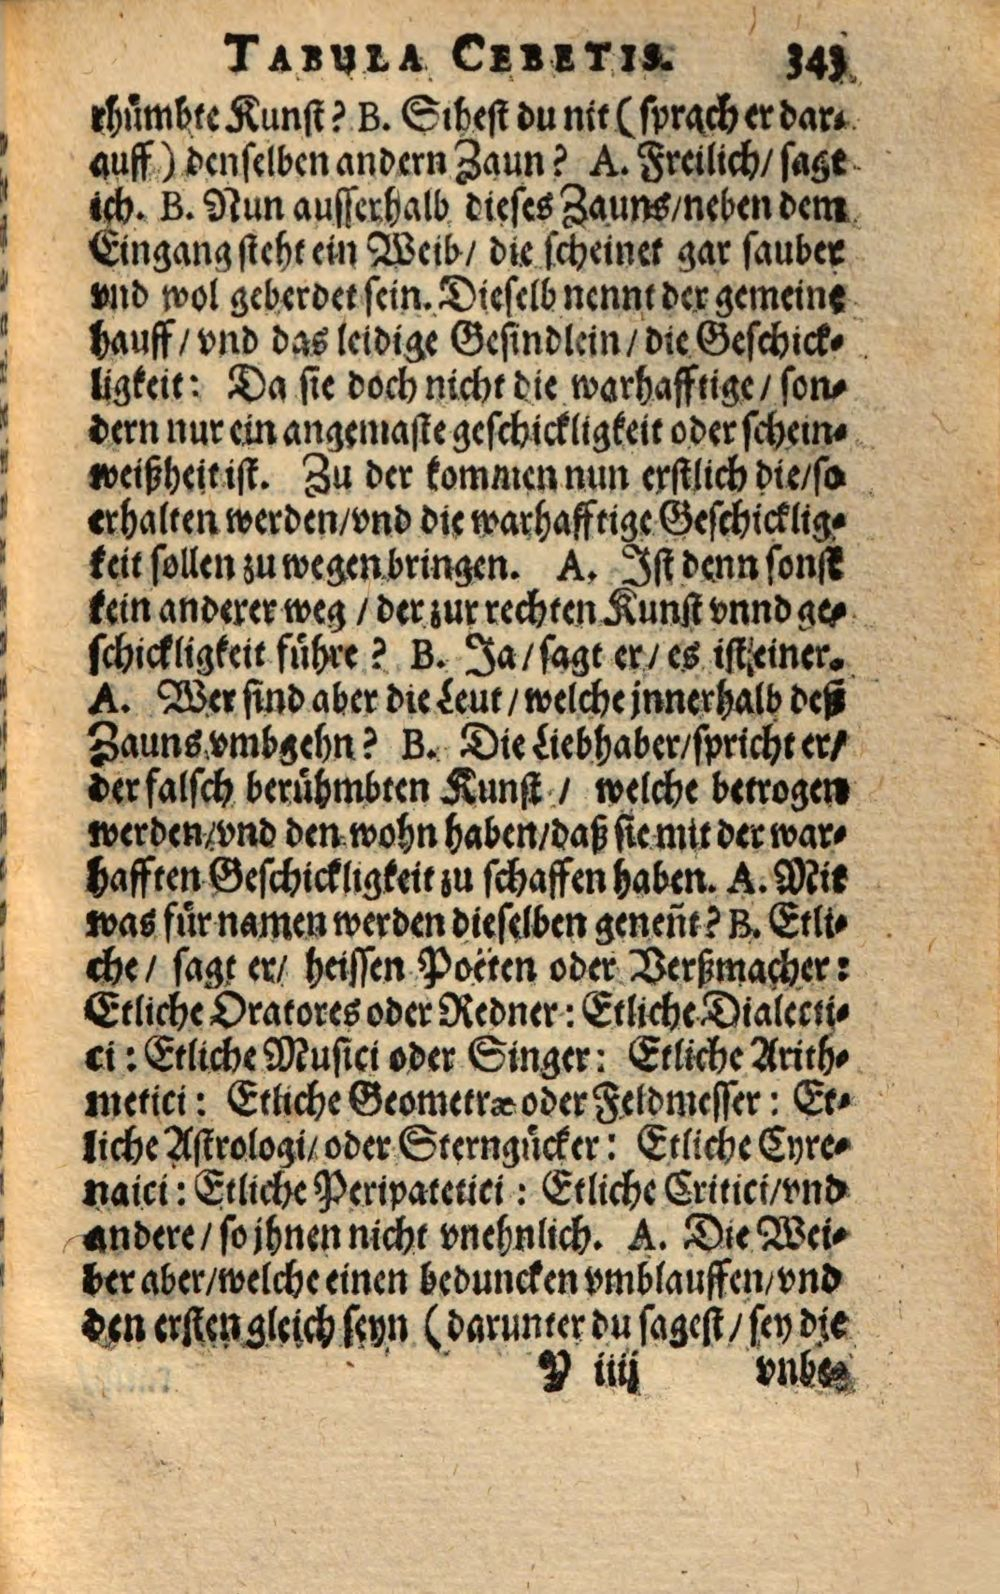 TABULA CEBETIS. 343
rhümbte Kunst? B. Sihest du nit (sprach er dar-
auff) denselben andern Zaun? A. Freilich/ sage
ich. B. Nun ausserhalb dieses Zauns/neben dem
Eingang steht ein Weib/ die scheinet gar sauber
vnd wol geberdet sein. Dieselb nennt der gemeine
hauff/ vnd das leidige Gesindlein/ die Geschick-
ligkeit: Da sie doch nicht die warhafftige/ son-
dern nur ein angemaste geschickligkeit oder schein-
weißheit ist. Zu der kommen nun erstlich die/so
erhalten werden/vnd die warhafftige Geschicklig-
keit sollen zu wegen bringen. A. Ist denn sonst
kein anderer weg / der zur rechten Kunst vnnd ge-
schickligkeit führe? B. Ja/ sagt er/ es ist einer.
A. Wer sind aber die Leut/ welche jnnerhalb deß
Zauns vmbgehn? B. Die Liebhaber/spricht er/
der falsch berühmbten Kunst / welche betrogen
werden/vnd den wohn haben/daß sie mit der war-
hafften Geschickligkeit zu schaffen haben. A. Mit
was für namen werden dieselben geneñt? B. Etli-
che/ sagt er/ heissen Poëten oder Verßmacher:
Etliche Oratores oder Redner: Etliche Dialecti-
ci: Etliche Musici oder Singer: Etliche Arith-
metici: Etliche Geometræ oder Feldmesser: Et-
liche Astrologi/ oder Sterngücker: Etliche Cyre-
naici: Etliche Peripatetici: Etliche Critici/vnd
andere/ so jhnen nicht vnehnlich. A. Die Wei-
ber aber/welche einen beduncken vmblauffen/vnd
den ersten gleich seyn (darunter du sagest/ sey die
Y iiij vnbe-